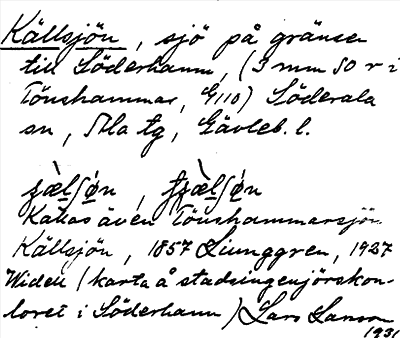 Källsjön, sjö på gränsen
till Söderhamn, (3 mm SO r i
Tönshammar, G110) Söderala
sn, Ala tg, Gävleb. l.
Kallas även Tönshammarsjön
Källsjön, 1857 Ljunggren, 1927
Widell (karta å stadsingenjörskon-
toret i Söderhamn) Lars Larson
1931